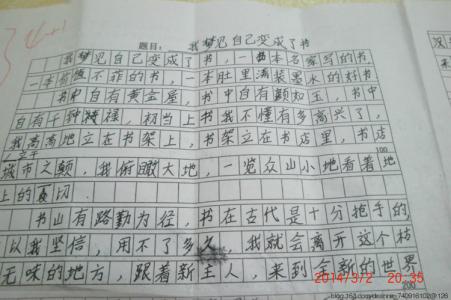 题目：我梦见自己变成了书
我梦见自己变成了书，一本名家写的书，
一本价值不菲的书，一本肚里流装墨水的好书
书中自有黄金屋，书中自有颜如玉，书中
自有千钟禄，初当上书我不懂有多高兴了，
我高高地立在书架上，书架立在书店里，书店
立于
100
城市之颠，我俯瞰大地，一览众山小地看着地
上的一切
书山有路勤为径，书在古代是十分抢手的，
以我坚信，用不了多久，我就会离开这个枯
无味的地方，跟着新主人，来到全新的世界
200
2014/3/2 20:35